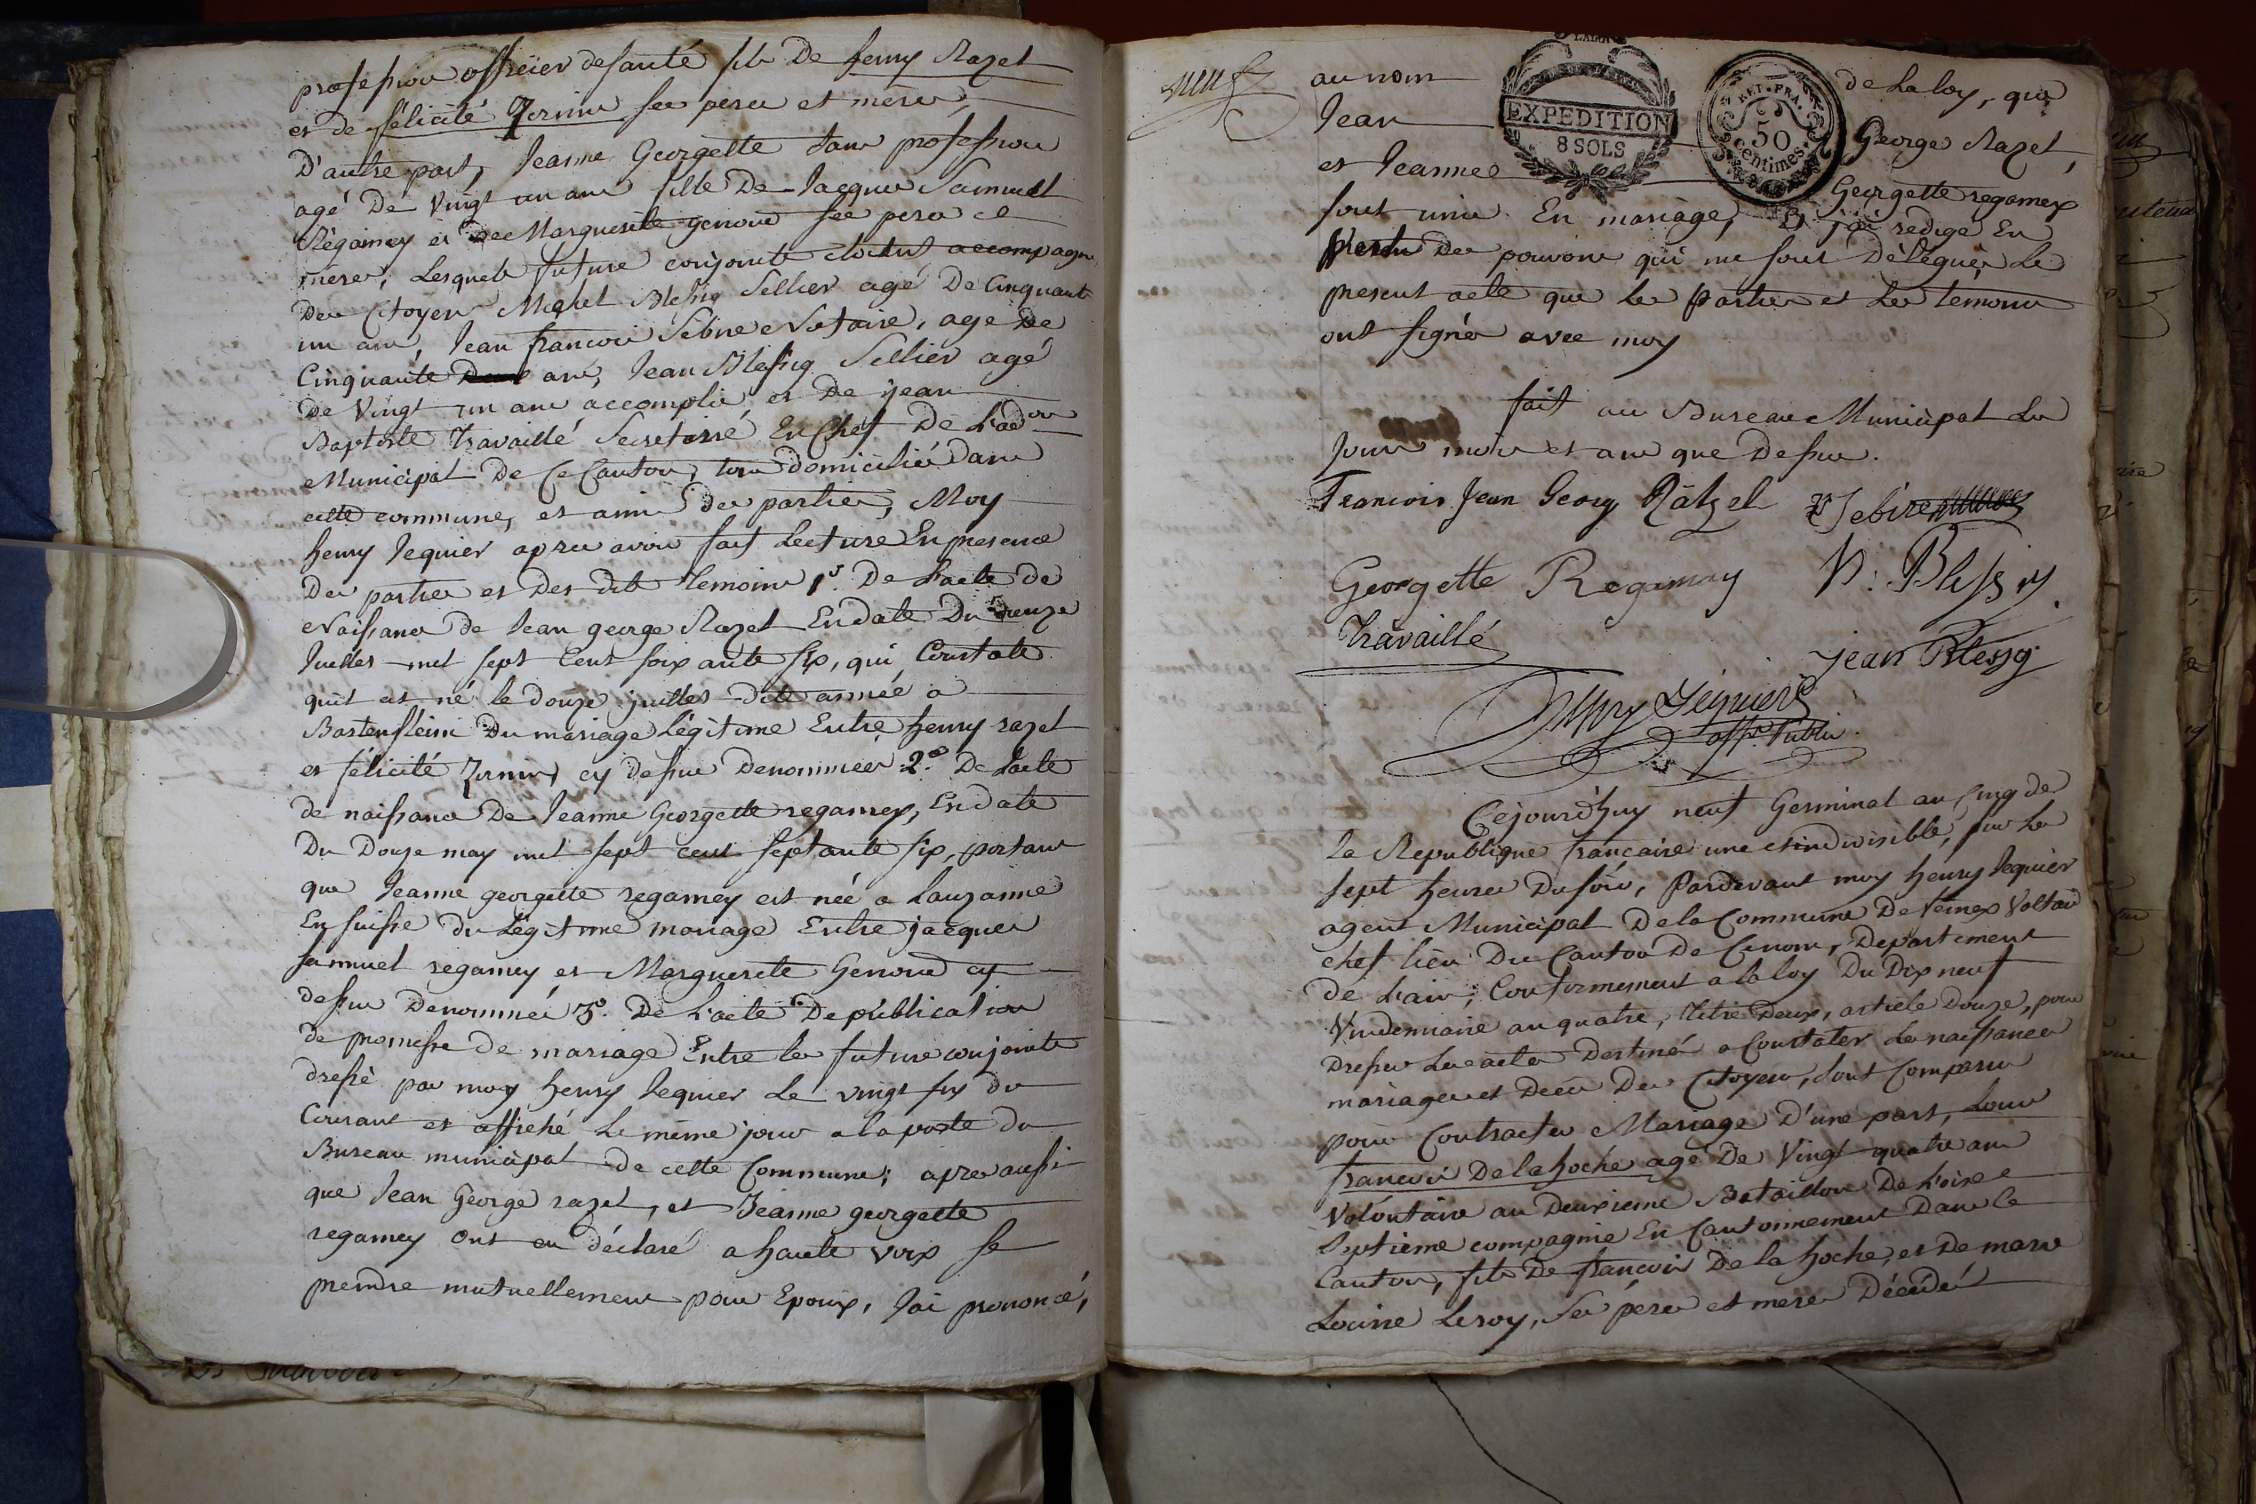 profession officier desanté fils De henry Razel
et de félicité Zornin ses peres et meres,
D'autre part, Jeanne Georgette sans profession
agé De Vingt un ans fille De Jacques Samuel
Régamey et De Marguerite genoud ses peres et
meres, Lesquels futurs conjoints etoient accompagnés
Des Citoyens Michel Blessig Sellier agé De Cinquante
un ans, Jean francois Sebire Notaire, agé De
Cinquante ans, Jean Blessig Sellier agé
De Vingt un ans accomplis, et De jean
Baptiste Travaillé Secretaire En Chef De L'adon
Municipal De Ce Canton, tous domiciliés Dans
cette commune, et amis des parties, Moy
henry Jequier apres avoir fait Lecture En presence
Des parties et Des dits Temoins 1º. De L'acte de
Naissance de Jean george Razel En date Du
Juillet mil sept Cent soixante six, qui Constate
quil est né le douze juillet dite année a
Bartenstein Du mariage légitime Entre henry razel
et félicité Zornin, cy dessus Denommées 2º. De Lacte
de naissance De Jeanne Georgette regamey, En date
Du Douze may mil sept cent septante six, portant
que Jeanne georgette regamey est née a Lauzanne
En suisse du Légitime mariage Entre jacques
samuel regamey et Marguerite Genoud cy
dessus Denommés 3º. De L'acte De publication
de promesse de mariage Entre les futurs conjoints
dressé par moy henry Jequier Le vingt six du
Courant et affiché le même jour a la porte du
Bureau municipal de cette Commune; apres aussi
que Jean George razel, et Jeanne georgette
regamey ont eu déclaré a haute voix se
prendre mutuellement pour Epoux, J'ai prononcé,
neuf
au nom de La loy, que
EXPEDITION
8 SOLS
RET. PRA.
50
centimes
Jean George Razel,
et Jeanne Georgette regamey
sont unis En mariage, Et j'ai redigé En
Des pouvoirs qui me sont Délégués Le
present acte que les parties et Les temoins
ont signés avec moy
fait au Bureau Municipal Les
Jours mois et ans que Dessus.
Francois Jean Georg Rätzel Sebire
Georgette Regamey M: Blessig
Travaillé
Jean Blessig
Henry Jéquier
offr. Public
Cejourd'huy neuf Germinal an Cinq de
la République francaise une et indivisible, sur les
sept heures Du soir, Pardevant moy henry Jequier
agent Municipal De la Commune De Vernex Voltaire
chef lieu Du Canton De Ce nom, Departement
de L'ain, Conformement a la loy Du Dix neuf
Vindemiaire an quatre, titre Deux, article Douze, pour
Dresser Les actes Destinés a Constater Les naissances
mariages et Deces Des Citoyens, sont Comparus
pour Contracter Mariage D'une part, Louis
francois De la hoche agé De Vingt quatre ans
Volontaire au Deuxieme Bataillon De L'oise
septieme compagnie En Cantonnement Dans le
Canton, fils De francois De la hoche, et De marie
Louise Leroy, ses peres et meres Décédés